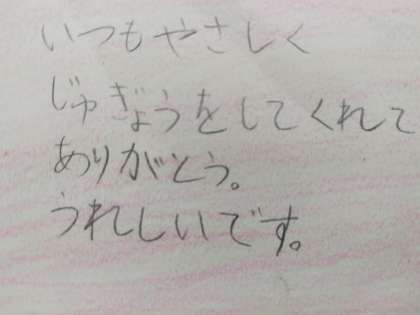 いつもやさしく
じゅぎょうをしてくれて
ありがとう。
うれしいです。